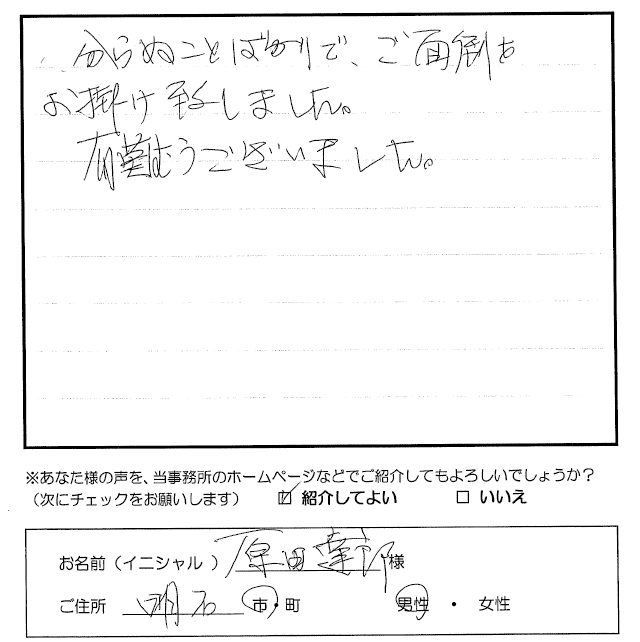 分らぬことばかりで、ご面倒を
お掛け致しました。
有難うございました。
※あなた様の声を、当事務所のホームページなどでご紹介してもよろしいでしょうか？
（次にチェックをお願いします） ☑ 紹介してよい □ いいえ
お名前（イニシャル ） 原田 様
ご住所 明石 市・町 男性 ・ 女性